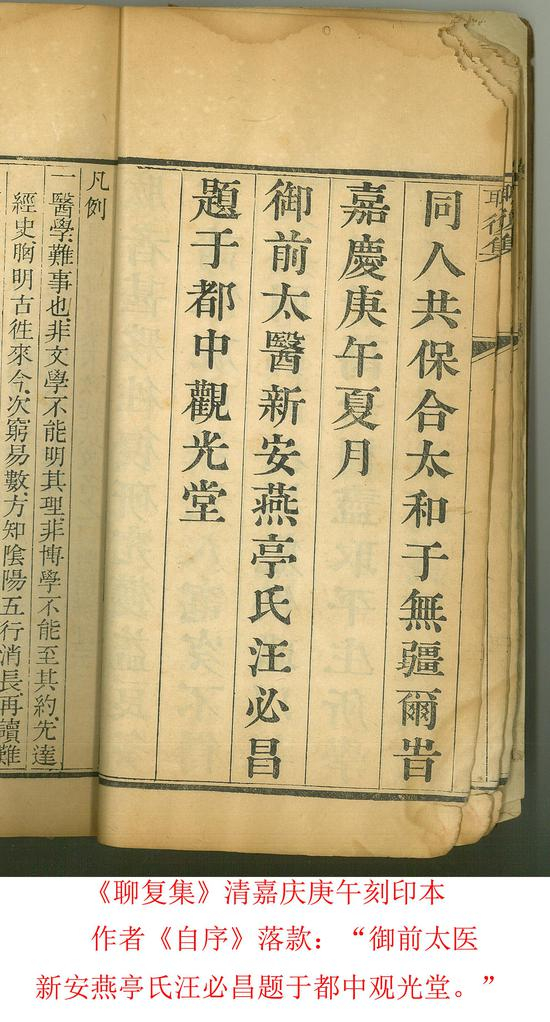 聊復集
同人共保合太和于無疆爾旹
嘉慶庚午夏月
御前太醫新安燕亭氏汪必昌
題于都中觀光堂
凡例
一醫學難事也.非文學不能明其理非博學不能至其約.先達
經史胸明古徃來今.次窮易數.方知陰陽五行消長.再讀難
《聊复集》清嘉庆庚午刻印本
作者《自序》落款：“御前太医
新安燕亭氏汪必昌题于都中观光堂。”